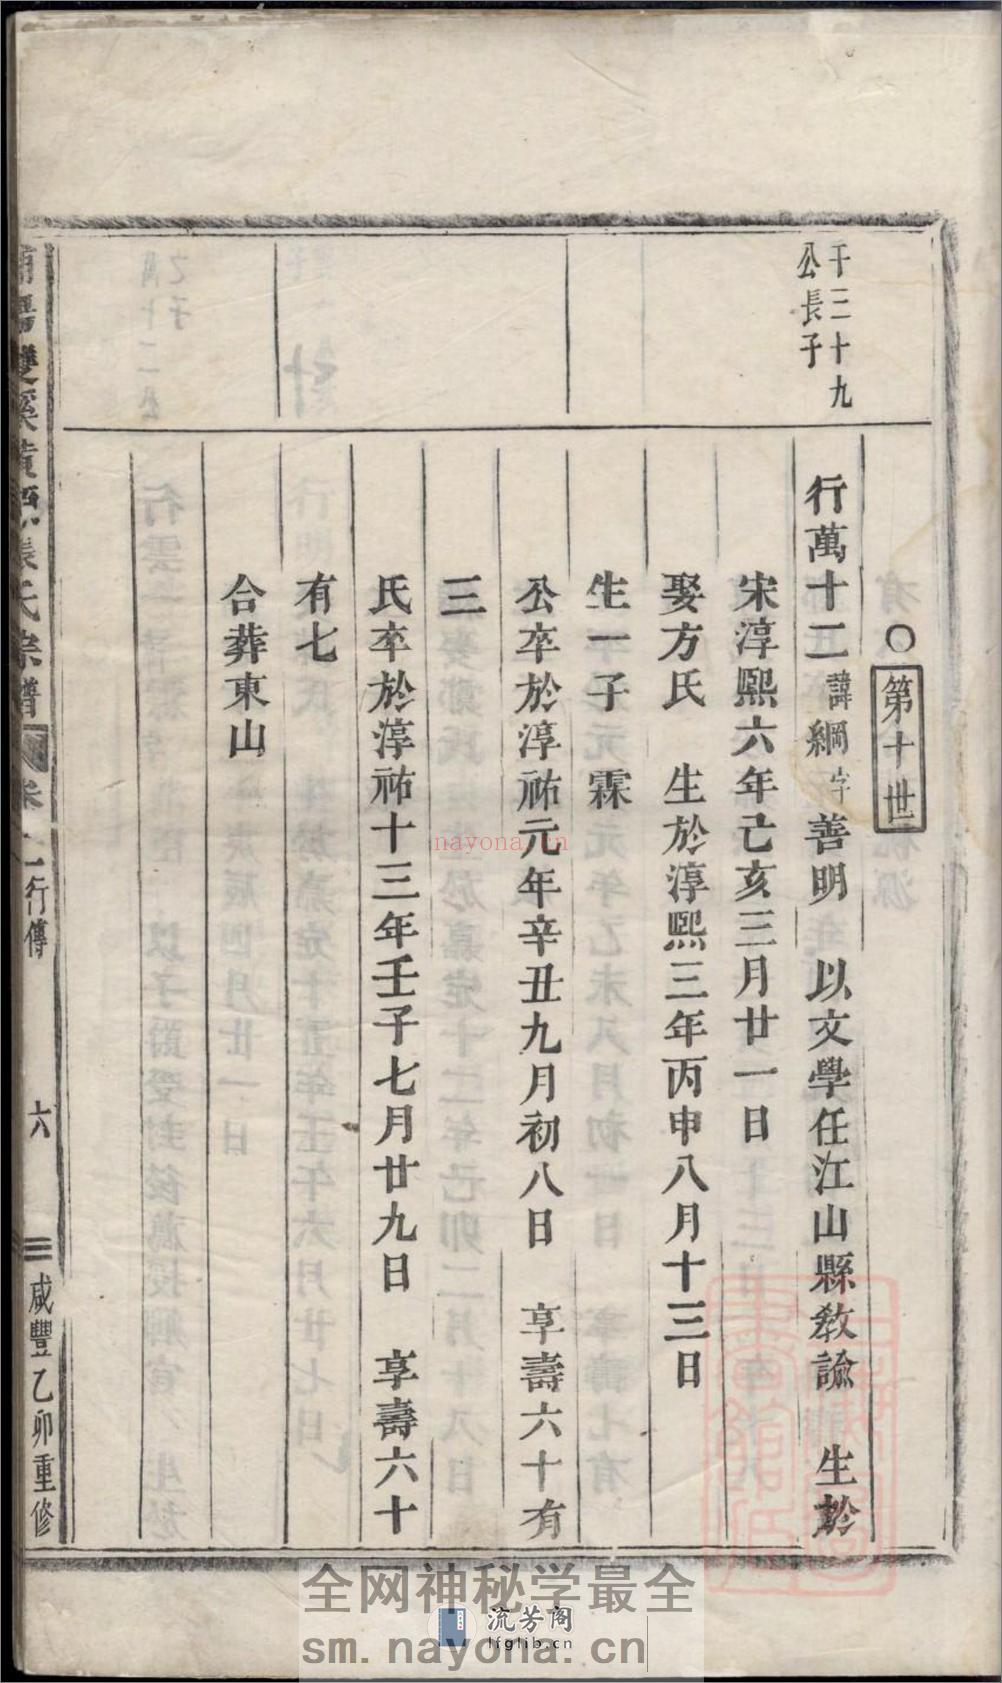 千三十九
公長子
○第十世
行萬十二諱綱字善明 以文學任江山縣教諭 生於
宋淳熙六年己亥三月廿一日
娶方氏 生於淳熙三年丙申八月十三日
生一子 霖
公卒於淳祐元年辛丑九月初八日 享壽六十有
三
氏卒於淳祐十三年壬子七月廿九日 享壽六十
有七
合葬東山
雙溪黃 張氏宗譜 卷 行傳 六 咸豐乙卯重修
nayona.cn
全网神秘学最全
流芳阁
lfglib.cn
sm.nayona.cn